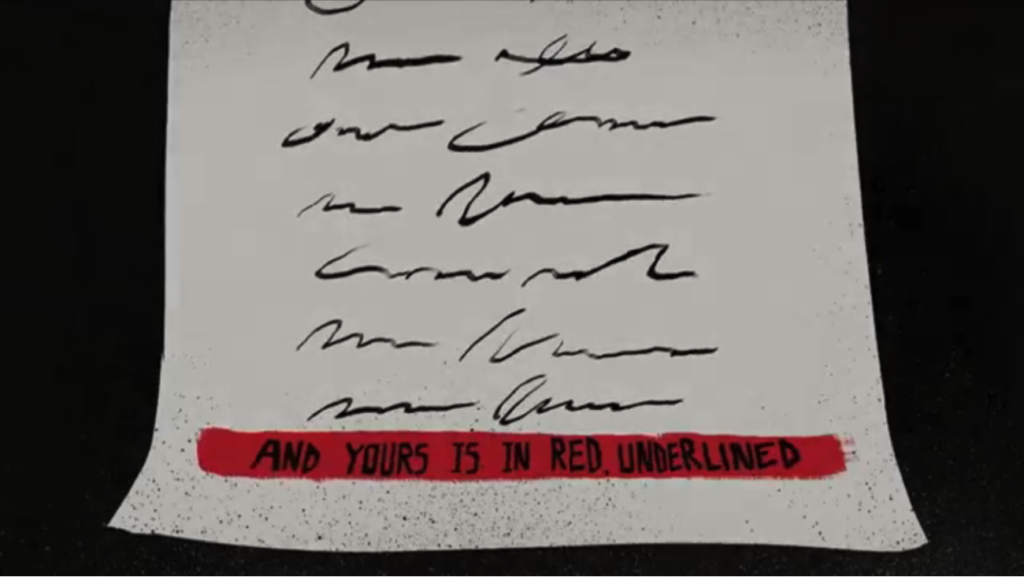 AND YOURS IS IN RED, UNDERLINED